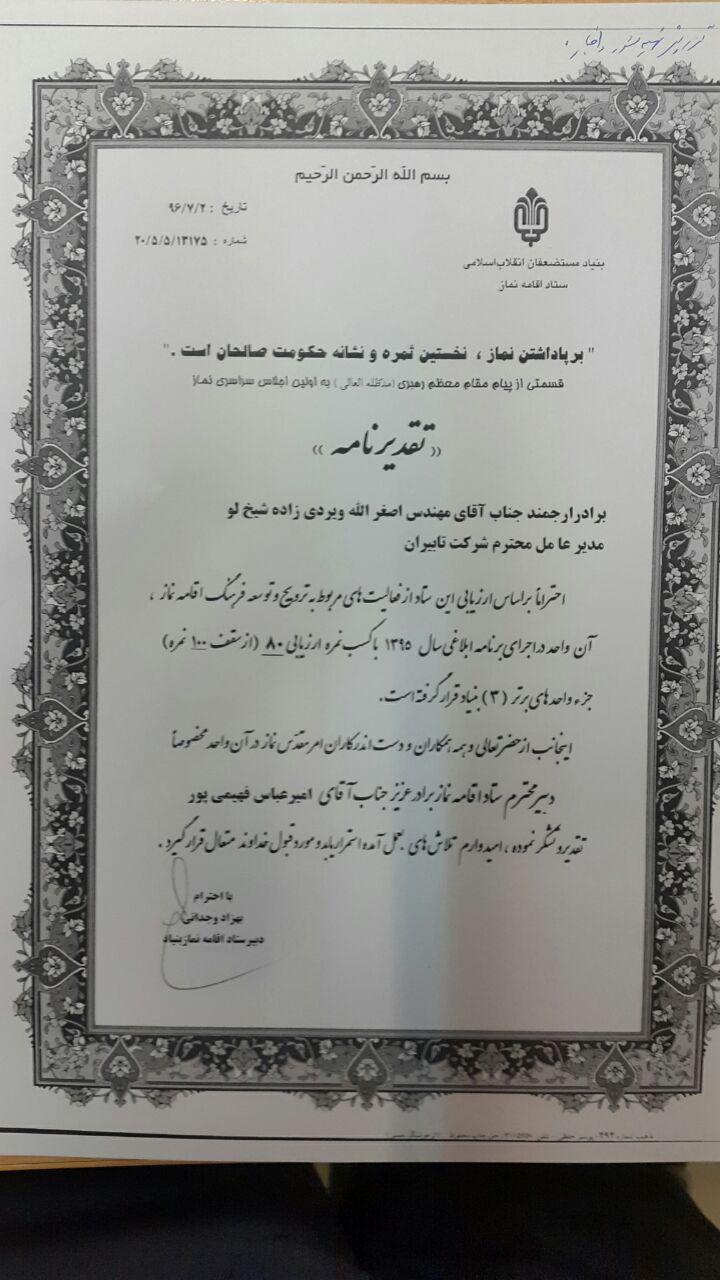 بسم الله الرّحمن الرّحیم
تاریخ : ۹۶/۷/۲
شماره : ۲۰/۵/۵/۱۳۱۷۵
بنیاد مستضعفان انقلاب اسلامی
ستاد اقامه نماز
" برپاداشتن نماز ، نخستین ثمره و نشانه حکومت صالحان است ."
قسمتی از پیام مقام معظم رهبری (مدظله العالی) به اولین اجلاس سراسری نماز
«تقدیرنامه»
برادر ارجمند جناب آقای مهندس اصغر الله ویردی زاده شیخ لو
مدیر عامل محترم شرکت تابیران
احتراماً براساس ارزیابی این ستاد از فعالیت های مربوط به ترویج و توسعه فرهنگ اقامه نماز ،
آن واحد در اجرای برنامه ابلاغی سال ۱۳۹۵ با کسب نمره ارزیابی ۸۰ (از سقف ۱۰۰ نمره)
جزء واحدهای برتر (۳) بنیاد قرار گرفته است.
اینجانب از حضرتعالی و همه همکاران و دست اندرکاران امر مقدّس نماز در آن واحد مخصوصاً
دبیر محترم ستاد اقامه نماز برادر عزیز جناب آقای امیرعباس فهیمی پور
تقدیر و تشکّر نموده ، امیدوارم تلاش های بعمل آمده استمرار یابد و مورد قبول خداوند متعال قرار گیرد .
با احترام
بهزاد وجدانی
دبیر ستاد اقامه نماز بنیاد